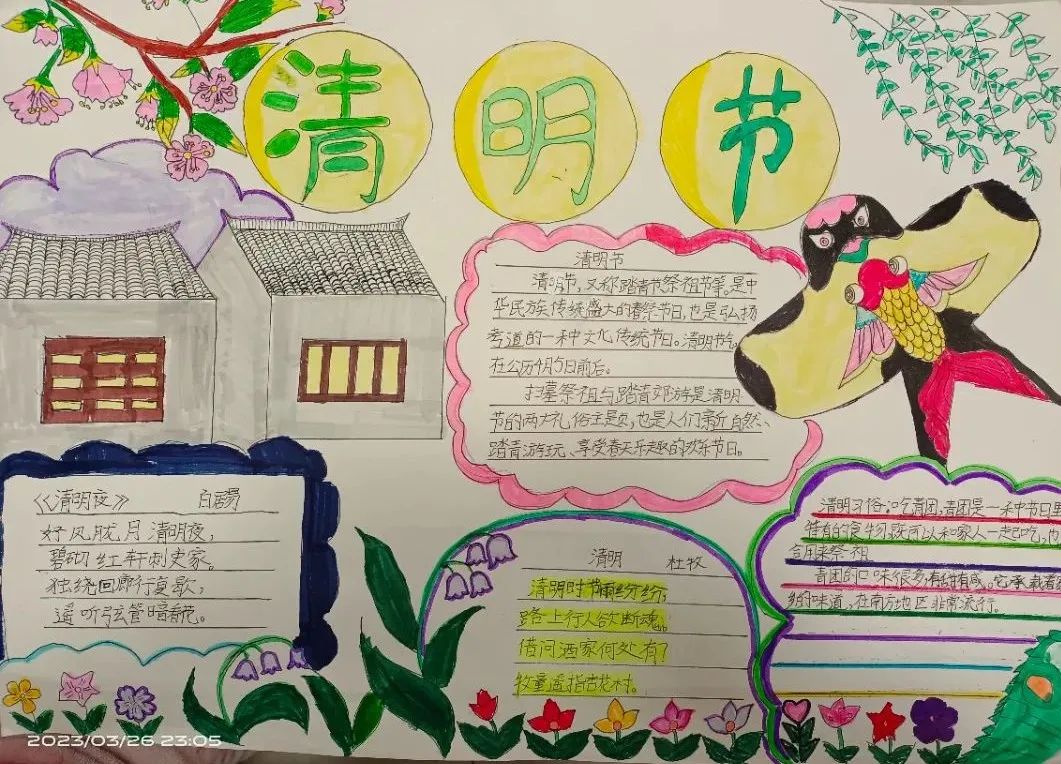 清明节
清明节
清明节,又称踏青节祭祖节等。是中
华民族传统盛大的春祭节日,也是弘扬
孝道的一种文化传统节日。清明节气
在公历4月5日前后。
扫墓祭祖与踏青郊游是清明
节的两大礼俗主题,也是人们亲近自然、
踏青游玩、享受春天乐趣的欢乐节日。
《清明夜》 白居易
好风胧月清明夜,
碧砌红轩刺史家。
独绕回廊行复歇,
遥听弦管暗看花。
清明 杜牧
清明时节雨纷纷,
路上行人欲断魂。
借问酒家何处有?
牧童遥指杏花村。
清明习俗:吃青团,青团是一种节日里
独有的食物,既可以和家人一起吃,也
会用来祭祖
青团的口味很多有甜有咸。它承载着
的味道,在南方地区非常流行。
2023/03/26 23:05